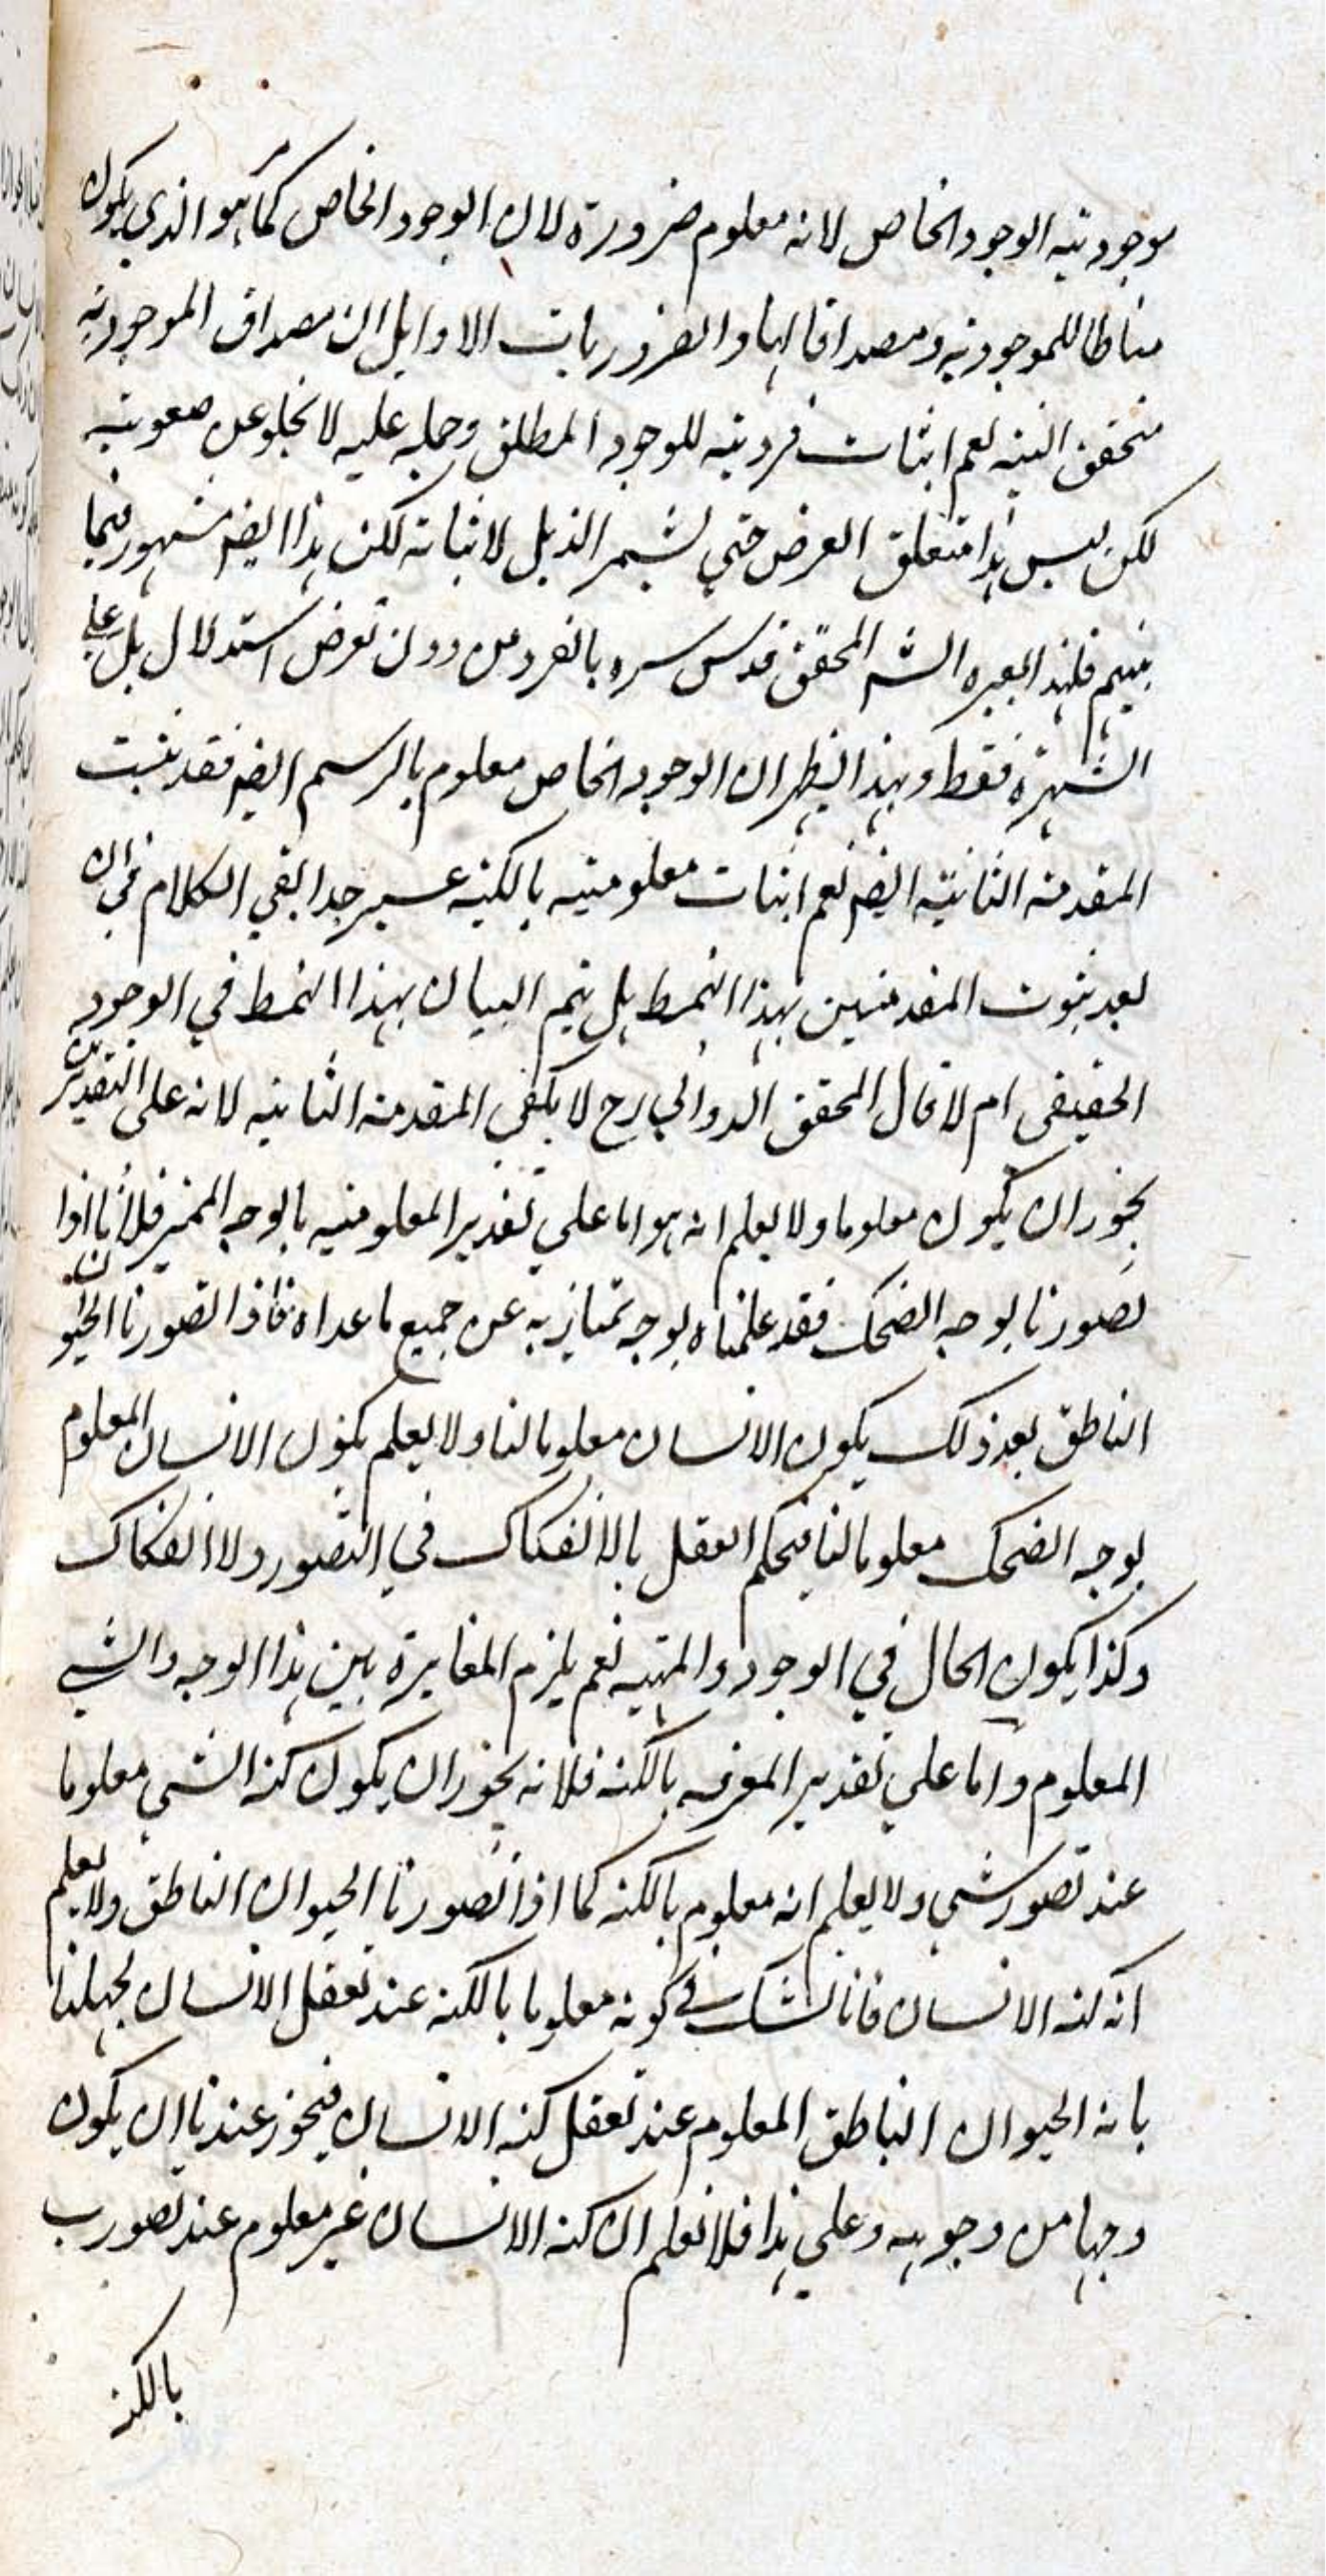 موجودتيه الوجود الخاص لانه معلوم ضرورة لان الوجود الخاص كما مر هو الذي يكون
مناطا للموجودية ومصداقا لها والضروريات الاوايل ان مصداق الموجودية
متحقق البتة نعم اثبات فرديته للوجود المطلق وحمله عليه لا يخلو عن صعوبة
لكن ليس هذا متعلق الغرض حتي نشمر الذيل لاثباته لكن هذا ايضا مشهور فيما
بينهم فلهذا يعبره الشم المحقق قدس سره بالفرد من دون تعرض استدلال بل علي
الشهرة فقط وبهذا يظهر ان الوجود الخاص معلوم بالرسم ايضا فقد ثبت
المقدمة الثانية ايضا نعم اثبات معلوميته بالكنه عسير جدا بقي الكلام في ان
بعد ثبوت المقدمتين بهذا النمط هل يتم البيان بهذا النمط في الوجود
الحقيقي ام لا قال المحقق الدواني رح لا يكفي المقدمة الثانية لانه على التقديرين
يجوز ان يكون معلوما ولا يعلم انه هو اما علي تقدير المعلومية بالوجه المميز فلانا اذا
تصورنا بوجه الضحك فقد علمناه بوجه تمتاز به عن جميع ما عداه فاذا تصورنا الحيوان
الناطق بعد ذلك يكون الانسان معلوما لنا ولا يعلم بكون الانسان المعلوم
بوجه الضحك معلوما لنا فيحكم العقل بالانفكاك في التصور ولا انفكاك
وكذا يكون الحال في الوجود والمهية نعم يلزم المغايرة بين هذا الوجه والشي
المعلوم واما علي تقدير المعرفه بالكنه فلانه يجوز ان يكون كنه الشي معلوما
عند تصور شي ولا يعلم انه معلوم بالكنه كما اذا تصورنا الحيوان الناطق ولا يعلم
انه كنه الانسان فانا نشك في كونه معلوما بالكنه عند تعقل الانسان لجهلنا
بانه الحيوان الناطق المعلوم عند تعقل كنه الانسان فيجوز عندنا ان يكون
وجها من وجوهه وعلي هذا فلا نعلم ان كنه الانسان غير معلوم عند تصور ب
بالكنه